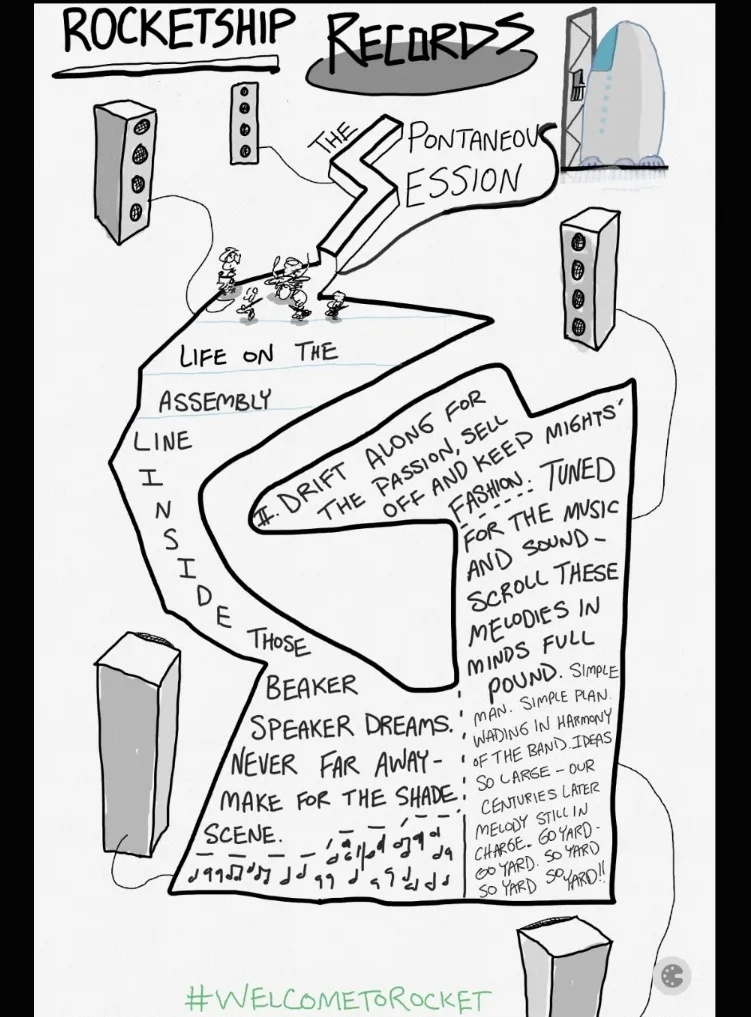 ROCKETSHIP RECORDS
THE SPONTANEOUS
SESSION
LIFE ON THE
ASSEMBLY
LINE
INSIDE
THOSE
BEAKER
SPEAKER DREAMS.
NEVER FAR AWAY-
MAKE FOR THE SHADE
SCENE.
II. DRIFT ALONG FOR
THE PASSION, SELL
OFF AND KEEP MIGHTS'
FASHION. TUNED
FOR THE MUSIC
AND SOUND-
SCROLL THESE
MELODIES IN
MINDS FULL
POUND. SIMPLE
MAN. SIMPLE PLAN.
WADING IN HARMONY
OF THE BAND. IDEAS
SO LARGE - OUR
CENTURIES LATER
MELODY STILL IN
CHARGE. GO YARD.
GO YARD. SO YARD
SO YARD SO YARD!!
#WELCOMETOROCKET